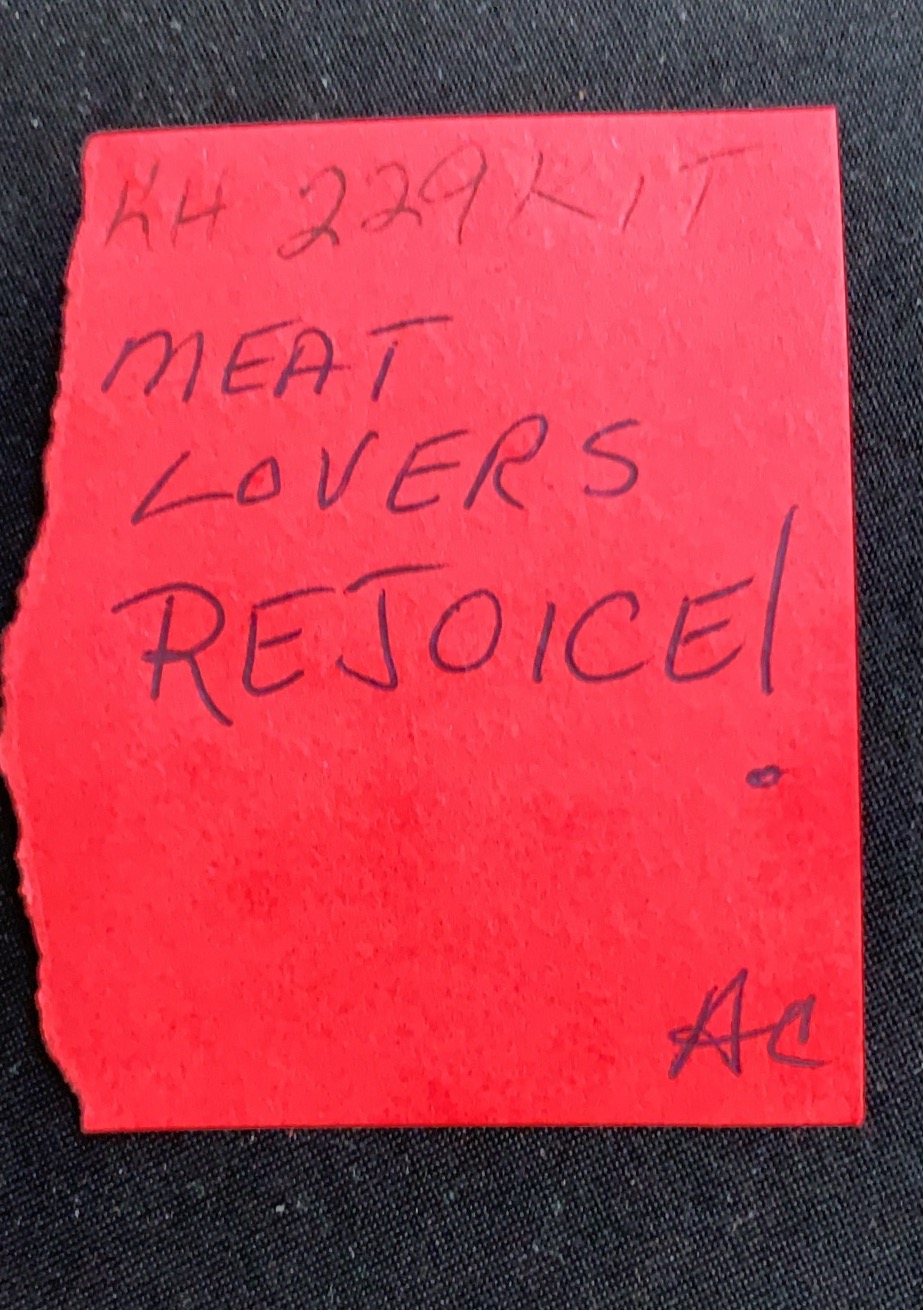 KH 229 KIT
MEAT
LOVERS
REJOICE!
AC